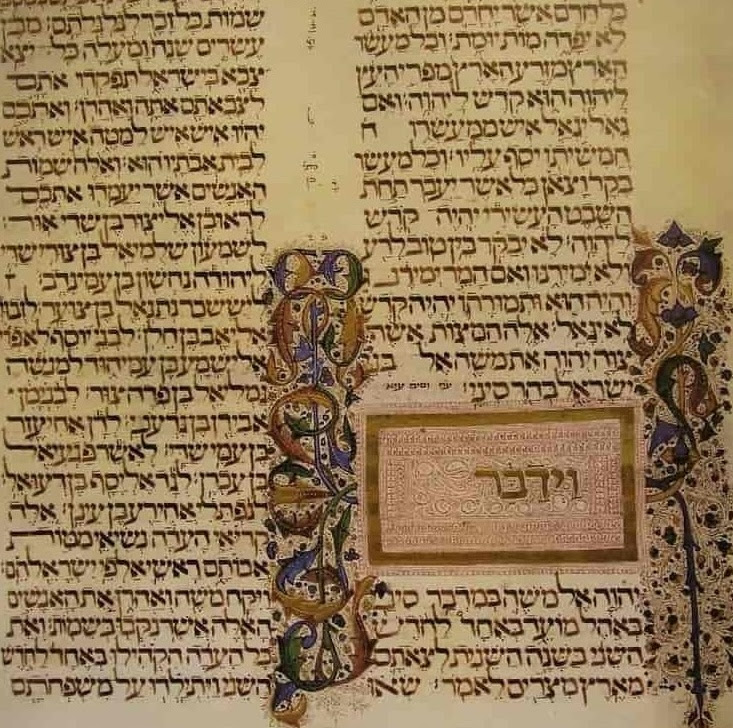 כל חרם אשר יחרם מן האדם
לא יפדה מות יומת׃ וכל מעשר
הארץ מזרע הארץ מפרי העץ
ליהוה הוא קדש ליהוה׃ ואם
גאל יגאל איש ממעשרו ח
חמשיתו יסף עליו׃ וכל מעשר
בקר וצאן כל אשר יעבר תחת
השבט העשירי יהיה קדש
ליהוה׃ לא יבקר בין טוב לרע
ולא ימירנו ואם המר ימירנו
והיה הוא ותמורתו יהיה קדש
לא יגאל׃ אלה המצות אשר
צוה יהוה את משה אל בני
ישראל בהר סיני׃
וידבר
יהוה אל משה במדבר סיני
באהל מועד באחד לחדש
השני בשנה השנית לצאתם
מארץ מצרים לאמר׃ שאו
שמות כל זכר לגלגלתם׃ מבן
עשרים שנה ומעלה כל יצא
צבא בישראל תפקדו אתם
לצבאתם אתה ואהרן׃ ואתכם
יהיו איש איש למטה איש ראש
לבית אבתיו הוא׃ ואלה שמות
האנשים אשר יעמדו אתכם
לראובן אליצור בן שדיאור׃
לשמעון שלמיאל בן צורישדי׃
ליהודה נחשון בן עמינדב׃
ליששכר נתנאל בן צוער׃ לזבו
אליאב בן חלן׃ לבני יוסף לאפרי
אלישמע בן עמיהוד למנשה
גמליאל בן פדהצור׃ לבנימן
אבידן בן גדעני׃ לדן אחיעזר
בן עמישדי׃ לאשר פגעיאל
בן עכרן׃ לגד אליסף בן דעואל׃
לנפתלי אחירע בן עינן׃ אלה
קריאי העדה נשיאי מטות
אבותם ראשי אלפי ישראל הם׃
ויקח משה ואהרן את האנשים
האלה אשר נקבו בשמת׃ ואת
כל העדה הקהילו באחד לחדש
השני ויתילדו על משפחתם